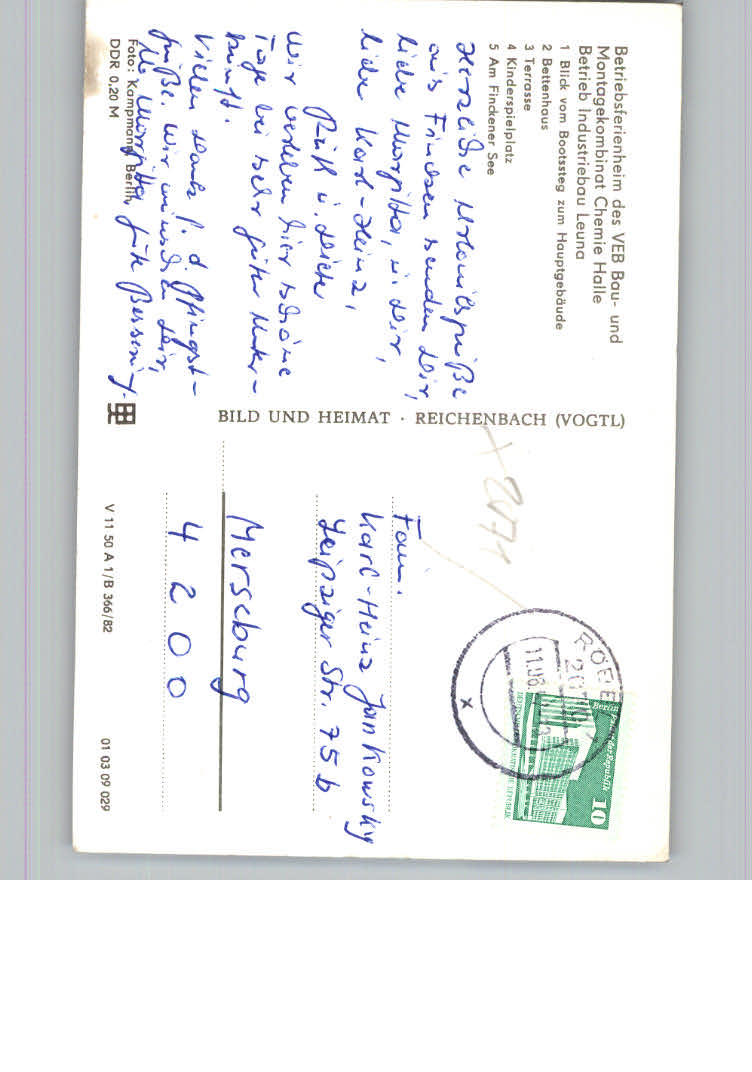 Betriebsferienheim des VEB Bau- und
Montagekombinat Chemie Halle
Betrieb Industriebau Leuna
1 Blick vom Bootssteg zum Hauptgebäude
2 Bettenhaus
3 Terrasse
4 Kinderspielplatz
5 Am Finckener See
Herzliche Urlaubsgrüße
aus Fincken senden Dir,
liebe Margitta, u. Dir,
lieber Karl-Heinz,
Ruth u. Dieter
Wir verleben hier schöne
Tage bei sehr guter Unter-
kunft.
Vielen Dank f. d. Pfingst-
grüße. Wir wünschen Dir,
lb. Margitta, gute Besserung.
Foto: Kampmann, Berlin
DDR 0,20 M
BILD UND HEIMAT · REICHENBACH (VOGTL)
V 11 50 A 1/B 366/82
01 03 09 029
Fam.
Karl-Heinz Jankowsky
Leipziger Str. 75 b
Merseburg
4200
RÖBE
207
11.
10
Berlin, Palast der Republik
DEUTSCHE DEMOKRATISCHE REPUBLIK